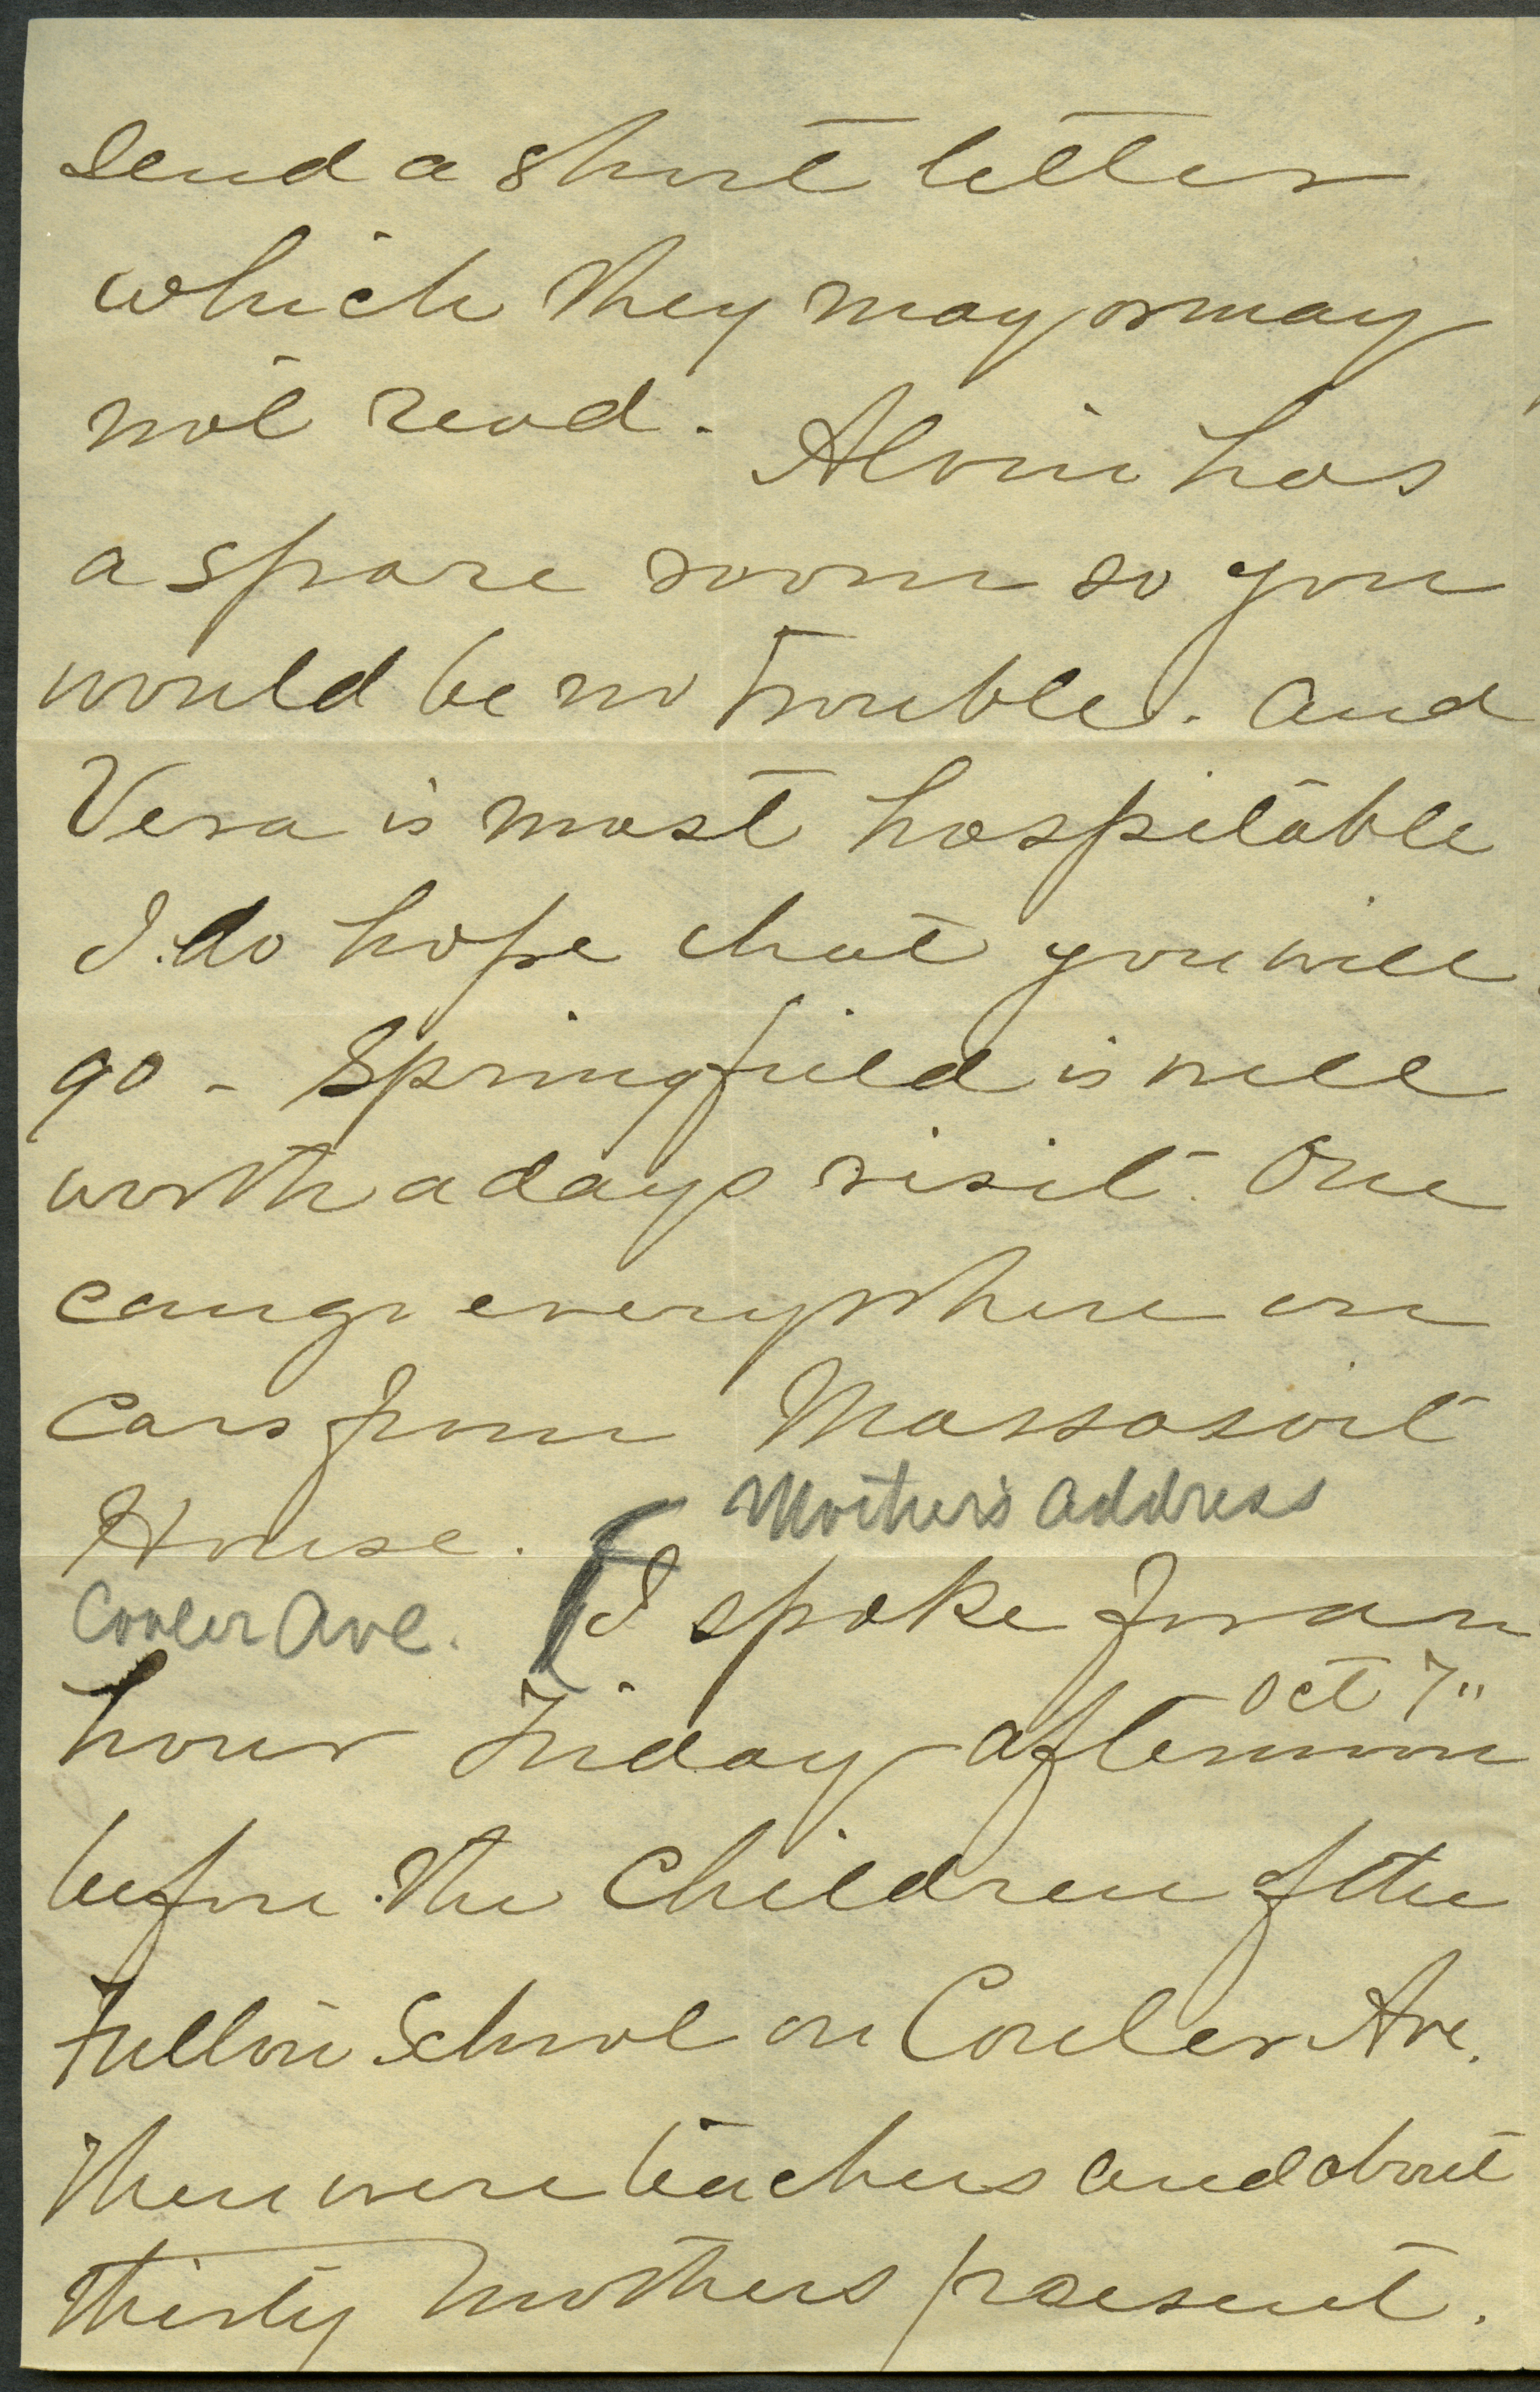 send a short letter
which they may or may
not read. Alvin has
a spare room so you
would be no trouble. and
Vera is most hospitable
I do hope that you will
go - Springfield is well
worth a days visit. One
can go everywhere on
cars from Massasoit
House. Mother's address
Conler Ave. I spoke for an
Oct 7"
hour Friday afternoon
before the Children of the
School on Conler Ave.
There were teachers and about
thirty mothers present.